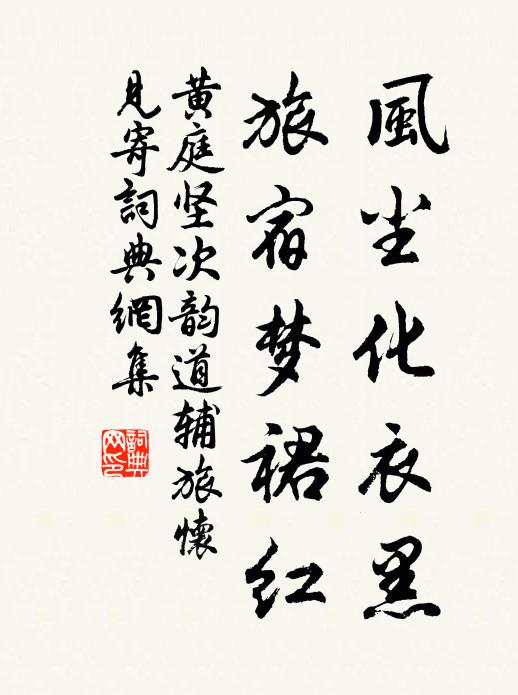 風尘化衣黑
旅宿梦裙红
黄庭坚次韵道辅旅懷
見寄詞典網集
詞典
网印